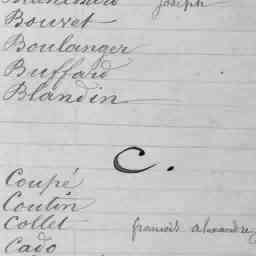 Joseph
Bouvet
Boulanger
Buffard
Blandin
C.
Coupé
Coutin
Collet françois alexandre
Cado